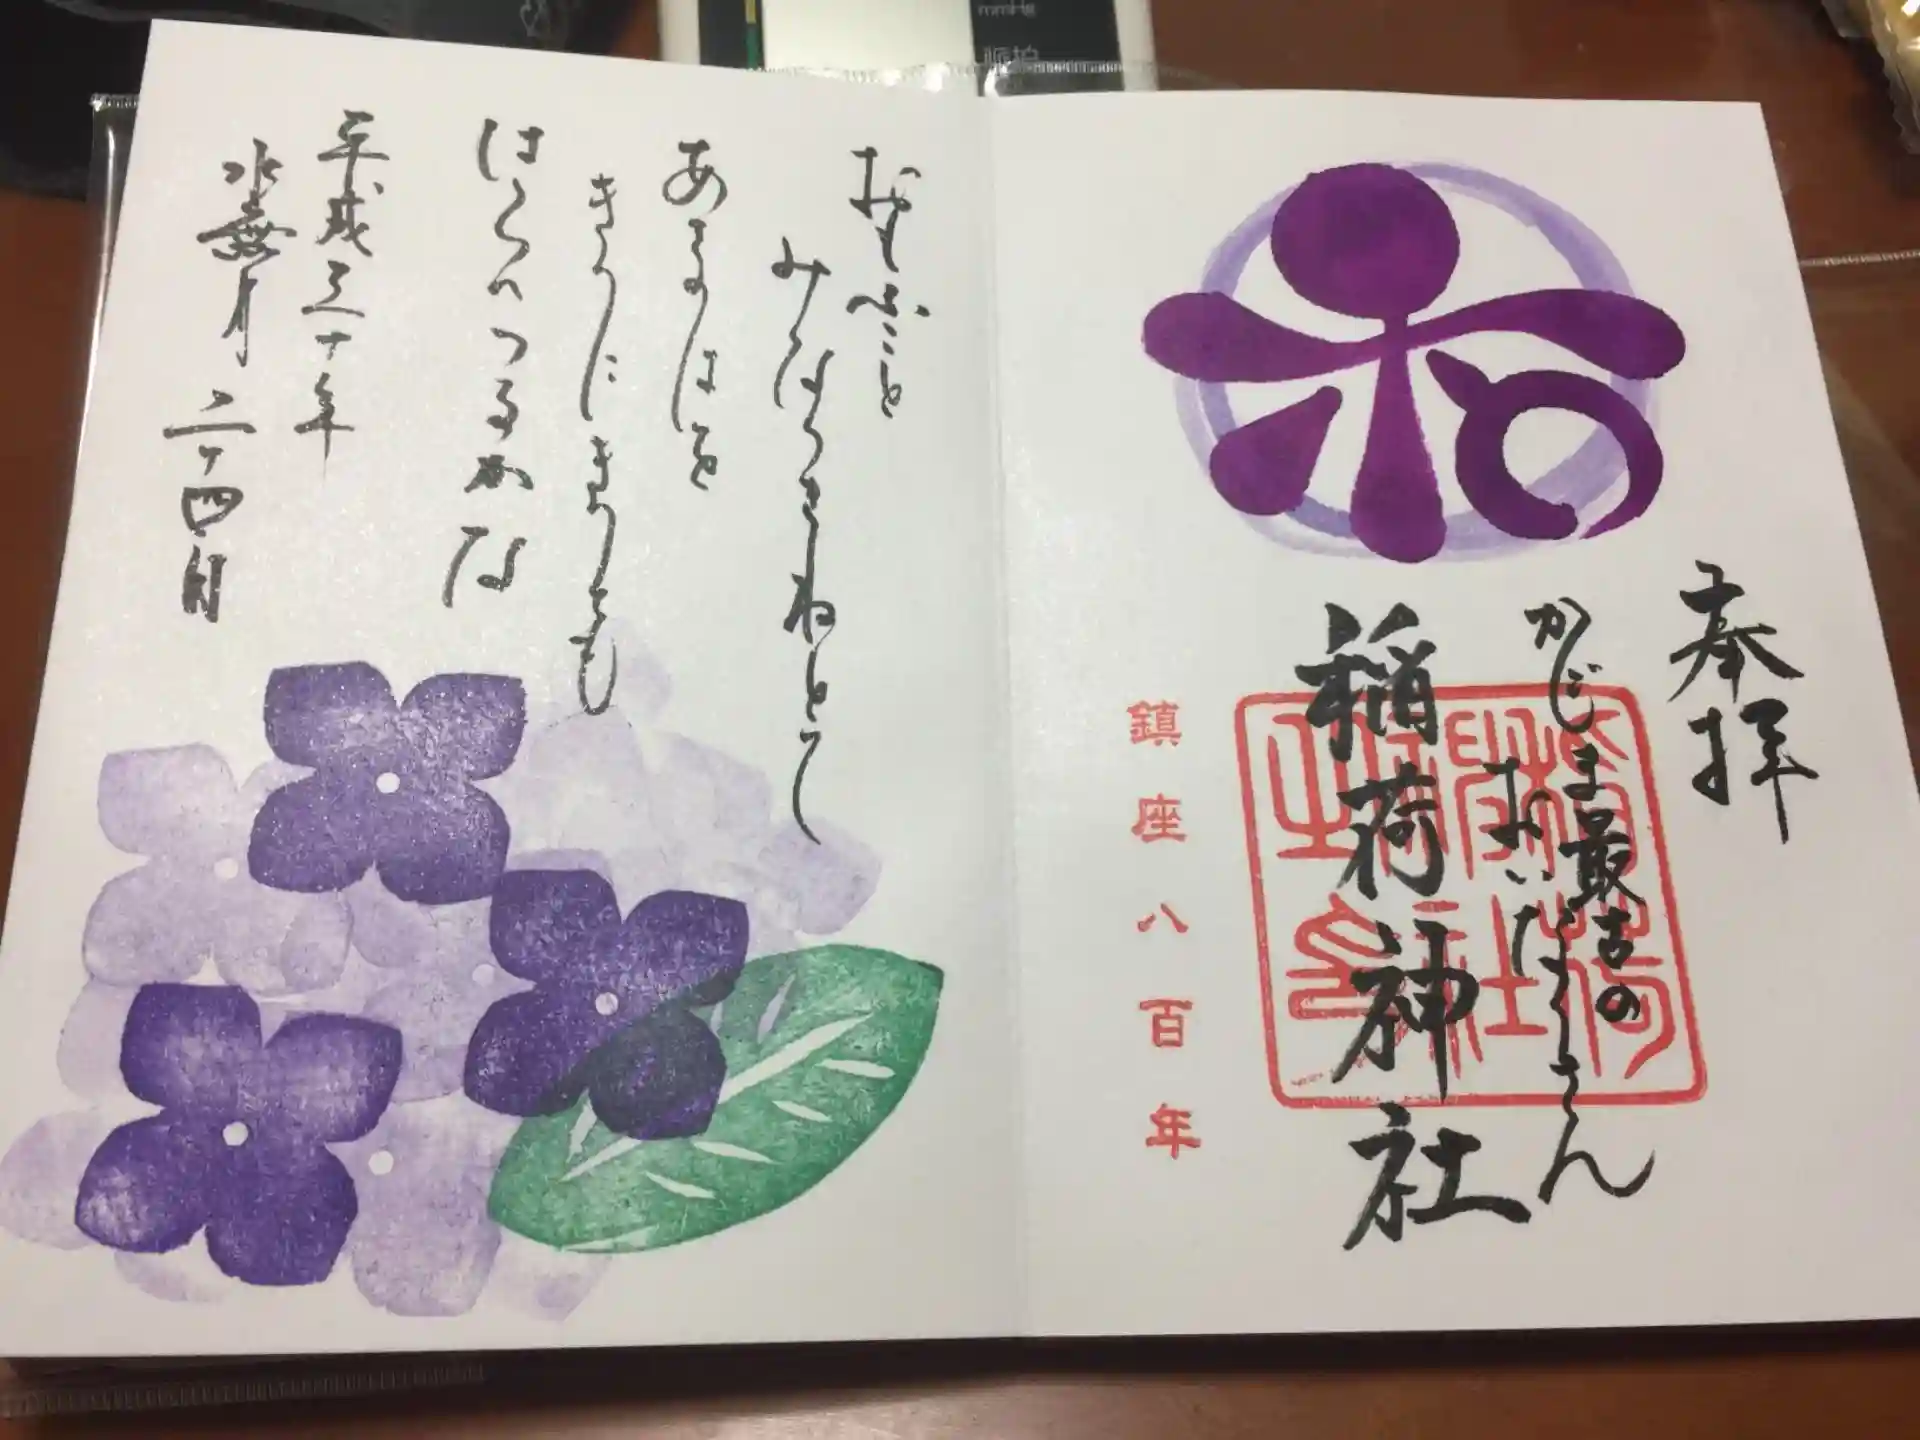 奉拝
かごしま最古の
おいなりさん
稲荷神社
鎮座八百年
和
おもふこと
みなつきねとて
あさのはを
きりにきりても
はらへつるかな
平成三十年
水無月二十四日
mmHg
脈拍